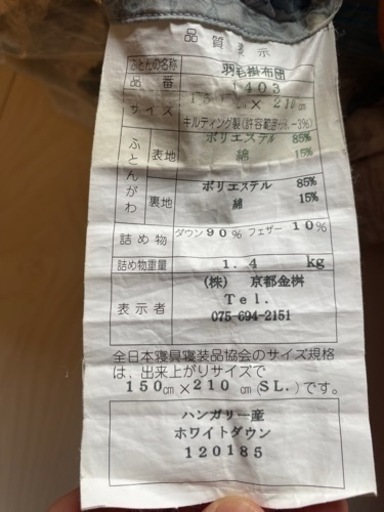 品質表示
ふとんの名称 羽毛掛布団
品番 1403
サイズ 150㎝×210㎝
キルティング製(許容範囲 -3%)
ふとんがわ 表地 ポリエステル 85%
綿 15%
裏地 ポリエステル 85%
綿 15%
詰め物 ダウン90% フェザー10%
詰め物重量 1.4 kg
表示者 (株) 京都金桝
Tel.
075-694-2151
全日本寝具寝装品協会のサイズ規格
は、出来上がりサイズで
150㎝×210㎝(SL.)です。
ハンガリー産
ホワイトダウン
120185